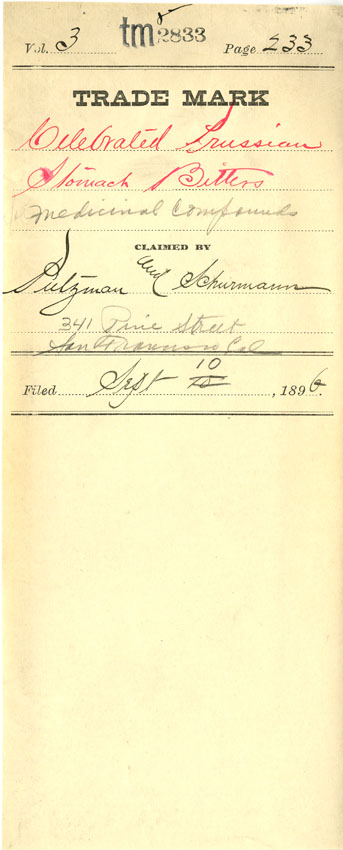 Vol. 3 tm 2833 Page 233
TRADE MARK
Celebrated Prussian
Stomach Bitters
Medicinal Compounds
CLAIMED BY
and
Schurmann
341 Pine Street
San Francisco Cal
Filed Sept 10 , 1896.